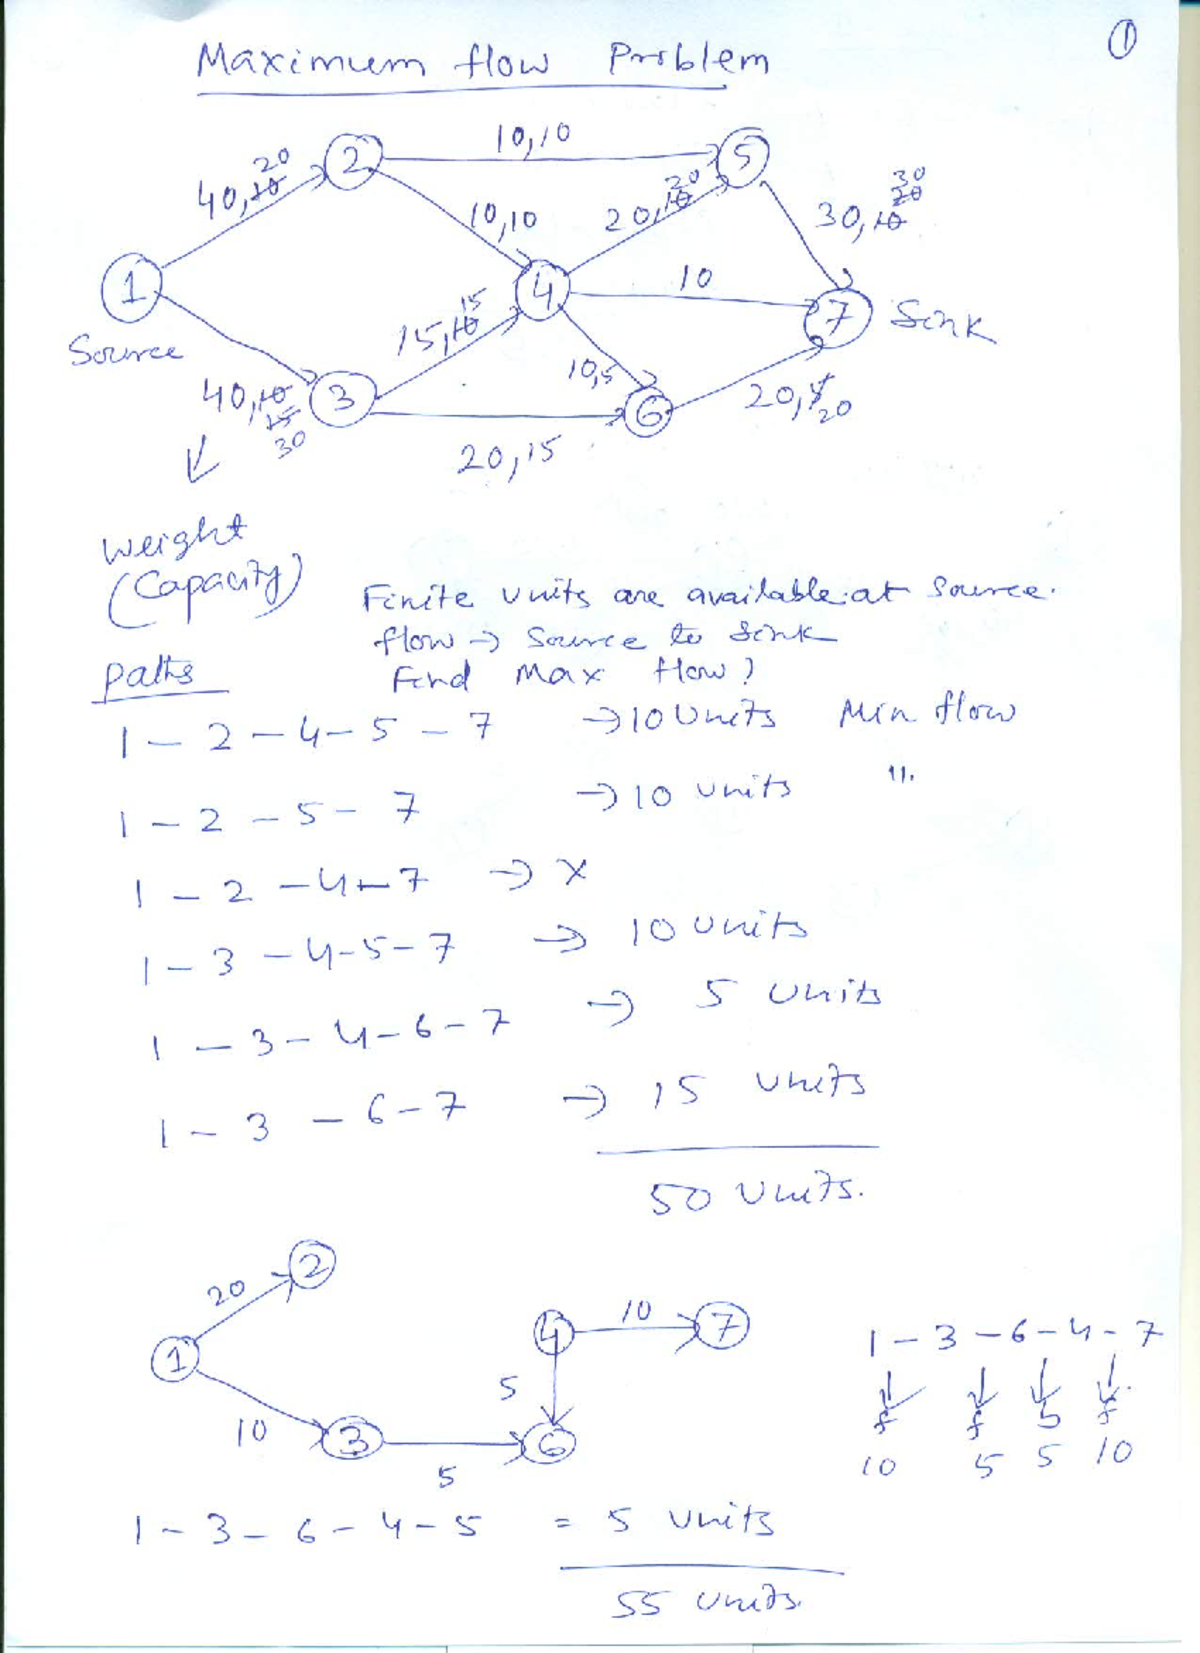 ①
Maximum flow Problem
10,10
② ⑤
20
40,10
10,10
20
20,10
30
20
30,10
① ④ 10 ⑦ Sink
Source
15
15,10
10,5
40,10
15
30
③ ⑥
20,15
20,
20
Weight
(Capacity)
Finite units are available at source.
flow → Source to Sink
Find Max flow?
Paths
1 - 2 - 4 - 5 - 7 → 10 Units Min flow
1 - 2 - 5 - 7 → 10 units 11.
1 - 2 - 4 - 7 → X
1 - 3 - 4 - 5 - 7 → 10 units
1 - 3 - 4 - 6 - 7 → 5 units
1 - 3 - 6 - 7 → 15 units
50 Units.
20 ②
① ④ 10 ⑦
1 - 3 - 6 - 4 - 7
5
f f b f
10 ③ 5 ⑥
10 5 5 10
1 - 3 - 6 - 4 - 5 = 5 units
55 units.